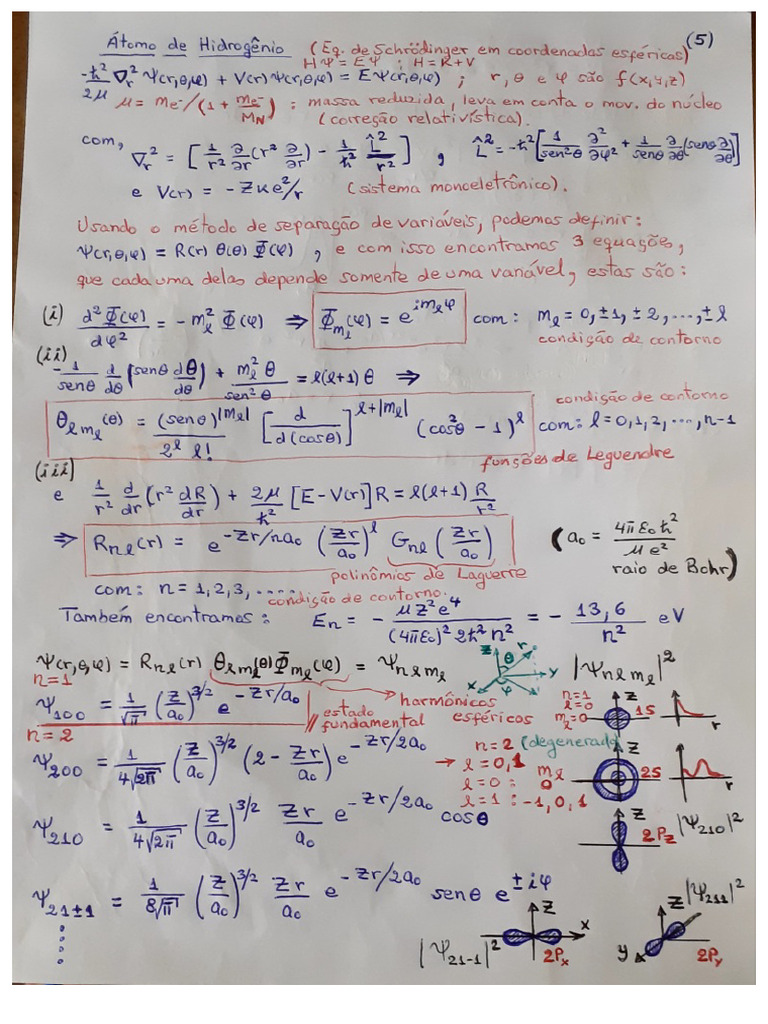 (5)
Átomo de Hidrogênio (Eq. de Schrödinger em coordenadas esféricas)
HΨ = EΨ ; H = K + V
-ħ²/2μ ∇r² Ψ(r,θ,φ) + V(r) Ψ(r,θ,φ) = EΨ(r,θ,φ) ; r, θ e φ são f(x,y,z)
μ = me-/(1 + me-/MN) : massa reduzida, leva em conta o mov. do núcleo
(correção relativística).
com, ∇r² = [1/r² ∂/∂r (r² ∂/∂r) - 1/ħ² L̂²/r²] , L̂² = -ħ² [1/sen²θ ∂²/∂φ² + 1/senθ ∂/∂θ (senθ ∂/∂θ)]
e V(r) = -Zke²/r (sistema monoeletrônico).
Usando o método de separação de variáveis, podemos definir:
Ψ(r,θ,φ) = R(r) Θ(θ) Φ(φ) , e com isso encontramos 3 equações,
que cada uma delas depende somente de uma variável, estas são:
(i) d²Φ(φ)/dφ² = -mℓ² Φ(φ) ⇒ Φmℓ(φ) = e^imℓφ com: mℓ = 0, ±1, ±2, ..., ±ℓ
condição de contorno
(ii)
-1/senθ d/dθ (senθ dΘ/dθ) + mℓ² Θ/sen²θ = ℓ(ℓ+1) Θ ⇒
condição de contorno
Θℓmℓ(θ) = (senθ)^|mℓ|/2^ℓ ℓ! [d/d(cosθ)]^ℓ+|mℓ| (cos²θ - 1)^ℓ com: ℓ = 0, 1, 2, ..., n-1
funções de Leguendre
(iii)
e 1/r² d/dr (r² dR/dr) + 2μ/ħ² [E - V(r)] R = ℓ(ℓ+1) R/r²
⇒ Rnℓ(r) = e^-Zr/na₀ (Zr/a₀)^ℓ Gnℓ (Zr/a₀) (a₀ = 4πε₀ħ²/μe²
raio de Bohr)
polinômios de Laguerre
com: n = 1, 2, 3, .....
condição de contorno.
Também encontramos: En = - μZ²e⁴/(4πε₀)² 2ħ² n² = - 13,6/n² eV
Ψ(r,θ,φ) = Rnℓ(r) Θℓmℓ(θ) Φmℓ(φ) = Ψnℓmℓ
harmônicos
esféricos
z
θ
r
y
x
φ
|Ψnℓmℓ|²
n=1
Ψ100 = 1/√π (Z/a₀)^3/2 e^-Zr/a₀
estado
fundamental
n=1
ℓ=0
mℓ=0
z
1S
r
n=2
Ψ200 = 1/4√2π (Z/a₀)^3/2 (2 - Zr/a₀) e^-Zr/2a₀
n=2 (degenerado)
→ ℓ=0,1 mℓ
ℓ=0 : 0
ℓ=1 : -1, 0, 1
z
2S
r
Ψ210 = 1/4√2π (Z/a₀)^3/2 Zr/a₀ e^-Zr/2a₀ cosθ
z
2Pz
|Ψ210|²
Ψ21±1 = 1/8√π (Z/a₀)^3/2 Zr/a₀ e^-Zr/2a₀ senθ e^±iφ
|Ψ21-1|²
z
x
2Px
z
|Ψ211|²
y
2Py